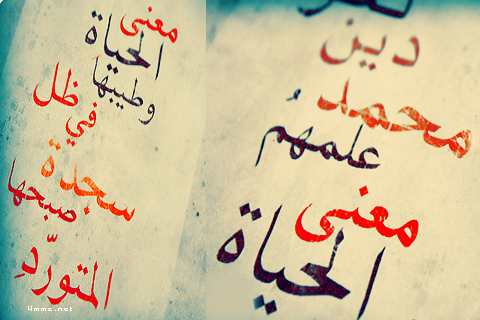 دين
محمد
علمهُم
معنى
الحياة
معنى
الحياة
وطيبها
في ظل
سجدة
صبحها
المتورّدِ
4mmz.net